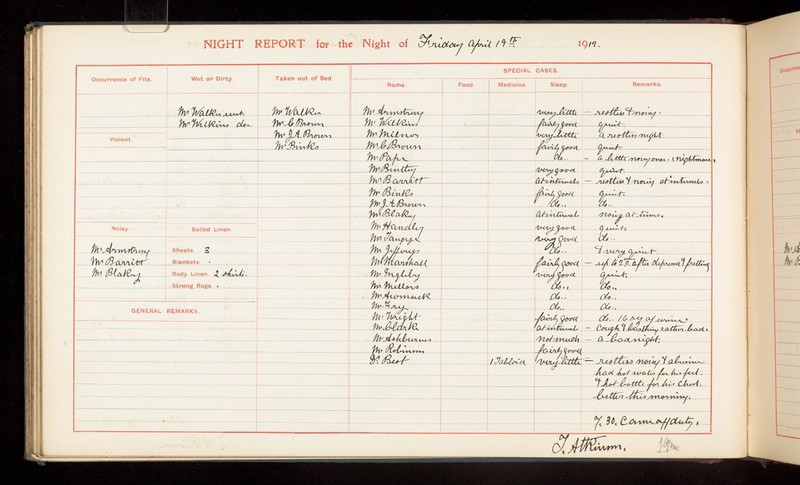 NIGHT REPORT for the Night of Friday April 19th 1912.
Occurrence of Fits. Wet or Dirty. Taken out of Bed. SPECIAL CASES.
Name. Food. Medicine. Sleep. Remarks.
Mr Walker wet. Mr Walker Mr Armstrong very little – restless & noisy.
Mr Wilkins do. Mr C Brown Mr Wilkins fairly good quiet.
Violent. Mr J.A. Brown Mr Milnes very little a restless night
Mr Binks Mr C Brown fairly good quiet
Mr Pape do. – a little noisy once. nightmare
Mr Bentley very good quiet.
Mr Barritt at intervals – restless & noisy at intervals.
Mr Binks fairly good quiet.
Mr J.A. Brown do.. do..
Mr Blakey at intervals noisy at times.
Noisy Soiled Linen. Mr Handley very good quiet.
very good do..
Mr Armstrong Sheets. 3 Mr Jeffreys do.. & very quiet
Mr Barritt Blankets. Mr Marshall fairly good – up to 2.
Mr Blakey Body Linen. 2 shirts. Mr Ingleby very good quiet.
Strong Rugs. Mr Mellors do.. do..
do.. do..
GENERAL REMARKS. Mr Fry do.. do..
Mr Wright fairly good do.. 16 oz of urine.
Mr Clark at intervals – Cough & breathing rather bad.
Mr Ashburner not much – a bad night.
Mr Robinson fairly good
Dr Best 1 Tabloid very little – restless noisy & abusive
had hot water for his feet.
& hot bottle for his chest.
better this morning.
7.30. Came off duty.
J. Atkinson.